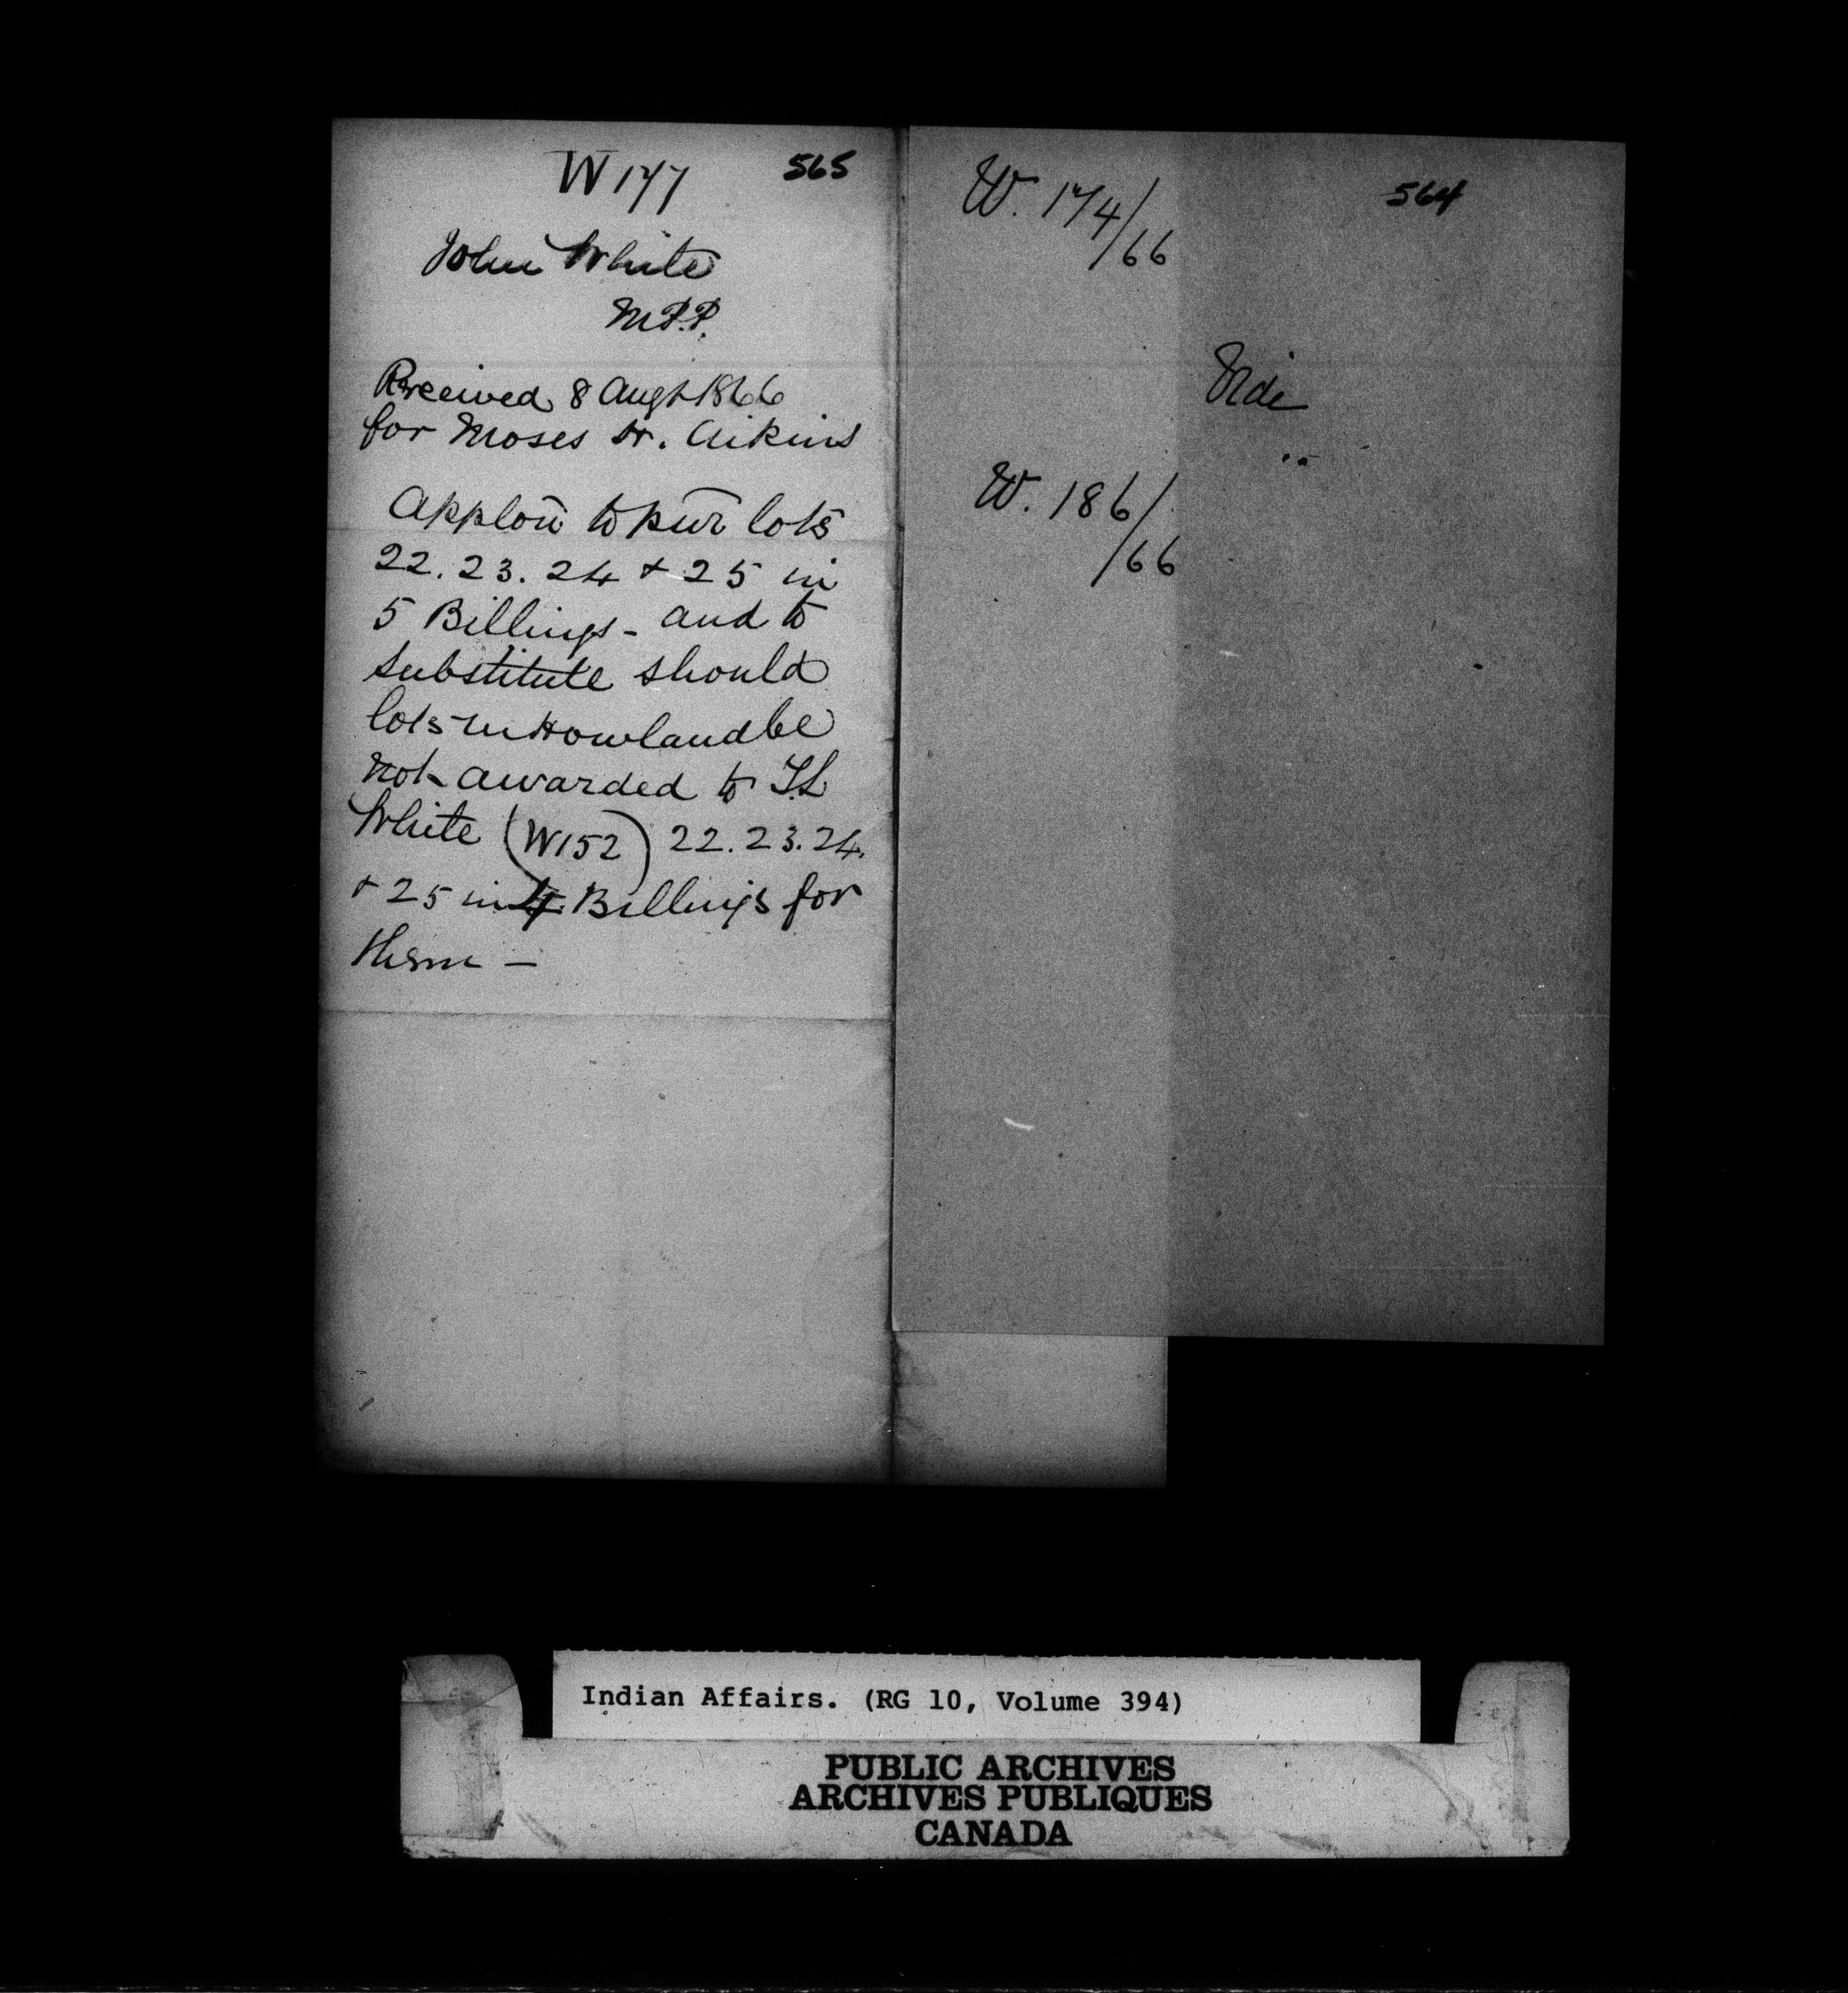 W 177 565
John White
M.P.P.
Received 8 Augt 1866
for Moses H. Aikins
Applon to pur lots
22. 23. 24 + 25 in
5 Billings - and to
substitute should
lots in Howland be
not awarded to T.L
White (W152) 22. 23. 24.
+ 25 in 4 Billings for
them -
W. 174/66
564
Vide
W. 186/66
Indian Affairs. (RG 10, Volume 394)
PUBLIC ARCHIVES
ARCHIVES PUBLIQUES
CANADA